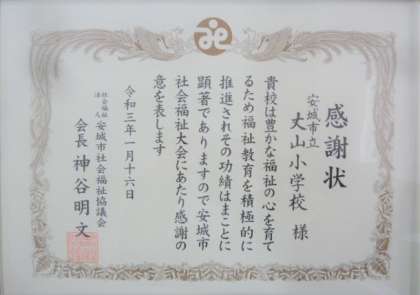 感謝状
安城市立
丈山小学校 様
貴校は豊かな福祉の心を育て
るため福祉教育を積極的に
推進されその功績はまことに
顕著でありますので安城市
社会福祉大会にあたり感謝の
意を表します
令和三年一月十六日
社会福祉法人 安城市社会福祉協議会
会長 神谷明文